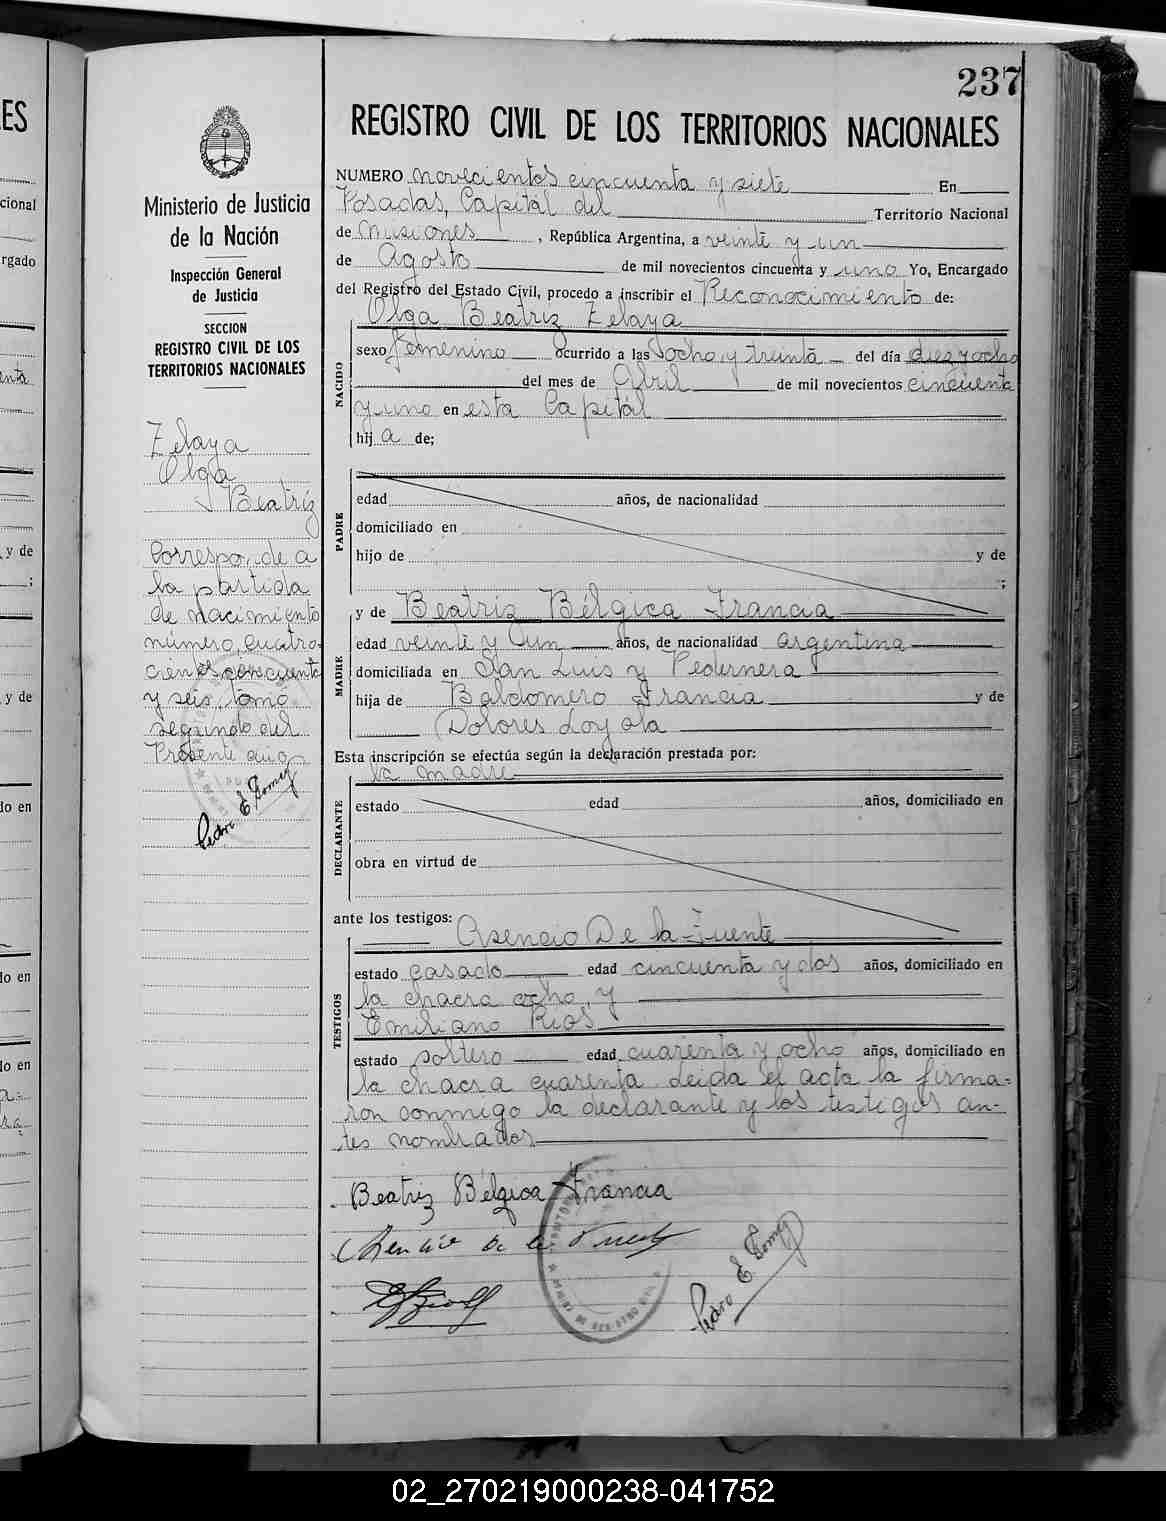 237
REGISTRO CIVIL DE LOS TERRITORIOS NACIONALES
Ministerio de Justicia
de la Nación
Inspección General
de Justicia
SECCION
REGISTRO CIVIL DE LOS
TERRITORIOS NACIONALES
Zelaya
Olga
Beatríz
Corresponde a
la partida
de nacimiento
número cuatro-
cientos cincuenta
y seis, tomo
segundo del
Presente año
Pedro E. Gomez
NUMERO novecientos cincuenta y siete En
Posadas, Capital del Territorio Nacional
de Misiones, República Argentina, a veinte y un
de Agosto de mil novecientos cincuenta y uno Yo, Encargado
del Registro del Estado Civil, procedo a inscribir el Reconocimiento de:
Olga Beatriz Zelaya
NACIDO
sexo femenino ocurrido a las ocho y treinta del día diez y ocho
del mes de Abril de mil novecientos cincuenta
y uno en esta Capital
hij a de;
PADRE
edad años, de nacionalidad
domiciliado en
hijo de y de
;
y de Beatriz Bélgica Francia
MADRE
edad veinte y un años, de nacionalidad argentina
domiciliada en San Luis y Pedernera
hija de Baldomero Francia y de
Dolores Loyola
Esta inscripción se efectúa según la declaración prestada por:
la madre
DECLARANTE
estado edad años, domiciliado en
obra en virtud de
ante los testigos:
Asencio De la Fuente
TESTIGOS
estado casado edad cincuenta y dos años, domiciliado en
la chacra ocho, y
Emiliano Rios
estado soltero edad cuarenta y ocho años, domiciliado en
la chacra cuarenta. Leida el acta la firma-
ron conmigo la declarante y los testigos an-
tes nombrados
Beatriz Bélgica Francia
Asencio de la Fuente
Pedro E. Gomez
ES
cional
rgado
y de
;
y de
do en
do en
do en
02_270219000238-041752